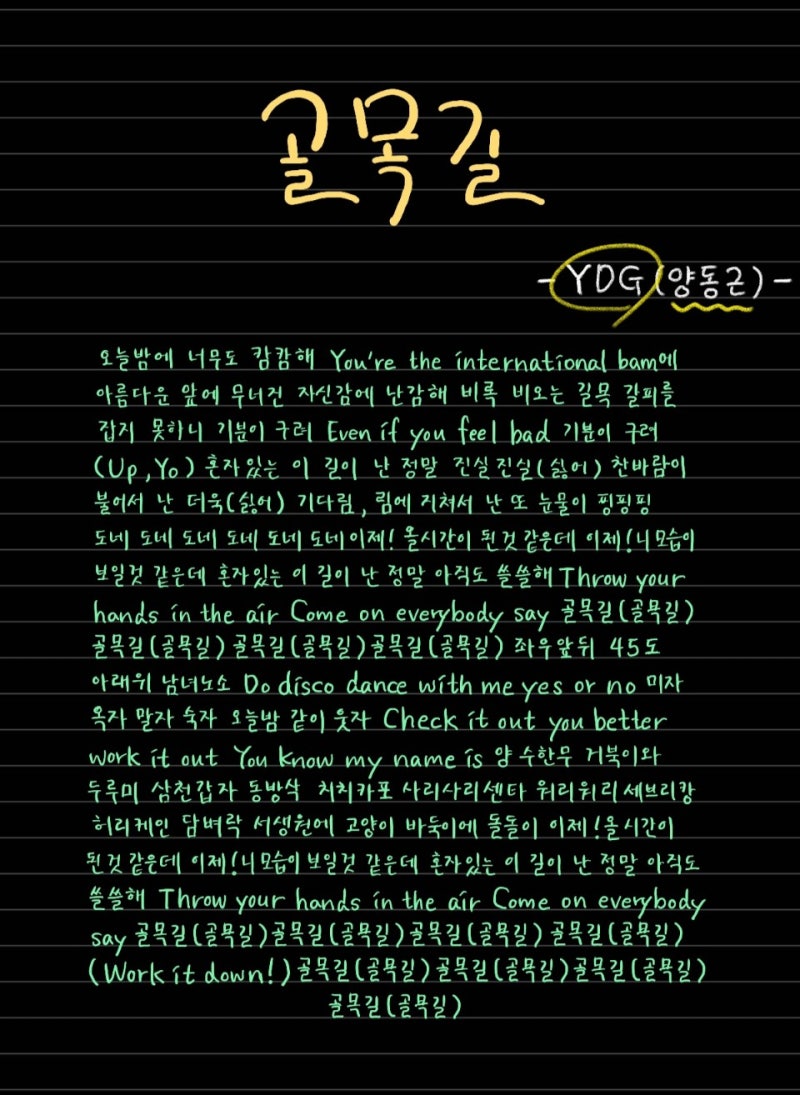 골목길
- YDG (양동근) -
오늘밤에 너무도 캄캄해 You're the international bam에
아름다운 앞에 무너진 자신감에 난감해 비록 비오는 길목 갈피를
잡지 못하니 기분이 구려 Even if you feel bad 기분이 구려
(Up, Yo) 혼자있는 이 길이 난 정말 진실진실(싫어) 찬바람이
불어서 난 더욱(싫어) 기다림, 림에 지쳐서 난 또 눈물이 핑핑핑
도네 도네 도네 도네 도네 도네이제! 올시간이 된것 같은데 이제! 니모습이
보일것 같은데 혼자있는 이 길이 난 정말 아직도 쓸쓸해 Throw your
hands in the air Come on everybody say 골목길(골목길)
골목길(골목길) 골목길(골목길) 골목길(골목길) 좌우앞뒤 45도
아래위 남녀노소 Do disco dance with me yes or no 미자
옥자 말자 숙자 오늘밤 같이 웃자 Check it out you better
work it out You know my name is 양 수한무 거북이와
두루미 삼천갑자 동방삭 치치카포 사리사리센타 워리워리 세브리캉
허리케인 담벼락 서생원에 고양이 바둑이에 돌돌이 이제! 올시간이
된것 같은데 이제! 니모습이 보일것 같은데 혼자있는 이 길이 난 정말 아직도
쓸쓸해 Throw your hands in the air Come on everybody
say 골목길(골목길) 골목길(골목길) 골목길(골목길) 골목길(골목길)
(Work it down!) 골목길(골목길) 골목길(골목길) 골목길(골목길)
골목길(골목길)